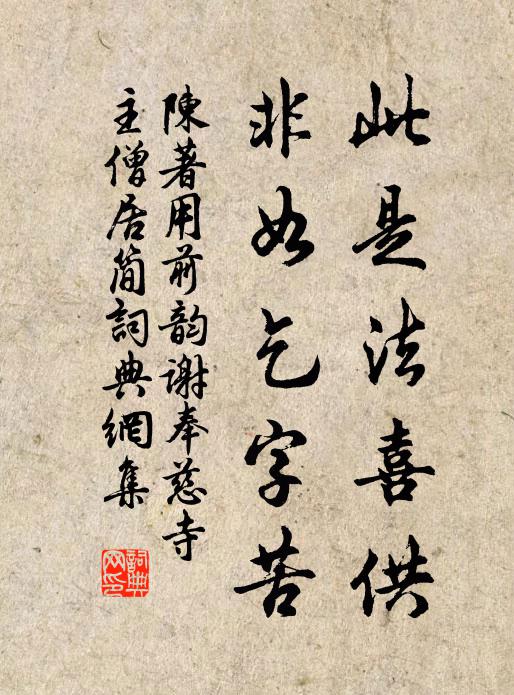 此是法喜供
非如乞字苦
陳著用前韵謝奉慈寺
主僧居簡詞典網集
詞典
网印